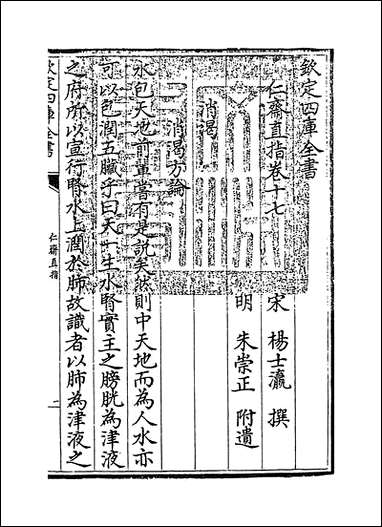 欽定四庫全書
仁齋直指卷十七
宋 楊士瀛 撰
明 朱崇正 附遺
消渴
消渴方論
水包天地前輩嘗有是說矣然則中天地而為人水亦
可以包潤五臟乎曰天一生水腎實主之膀胱為津液
之府所以宣行腎水上潤於肺故識者以肺為津液之
欽定四庫全書
仁齋直指